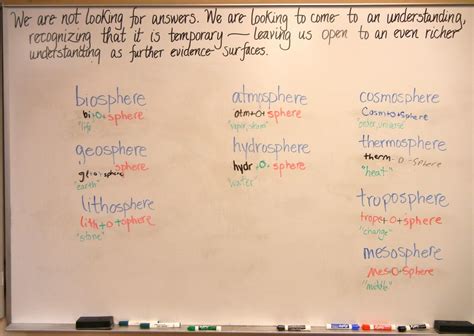 We are not looking for answers. We are looking to come to an understanding,
recognizing that it is temporary — leaving us open to an even richer
understanding as further evidence surfaces.
biosphere
bi+o+sphere
"life"
geosphere
ge+o+sphere
"earth"
lithosphere
lith+o+sphere
"stone"
atmosphere
atm+o+sphere
"vapor, steam"
hydrosphere
hydr+o+sphere
"water"
cosmosphere
cosm+o+sphere
"order, universe"
thermosphere
therm+o+sphere
"heat"
troposphere
trop+o+sphere
"change"
mesosphere
mes+o+sphere
"middle"